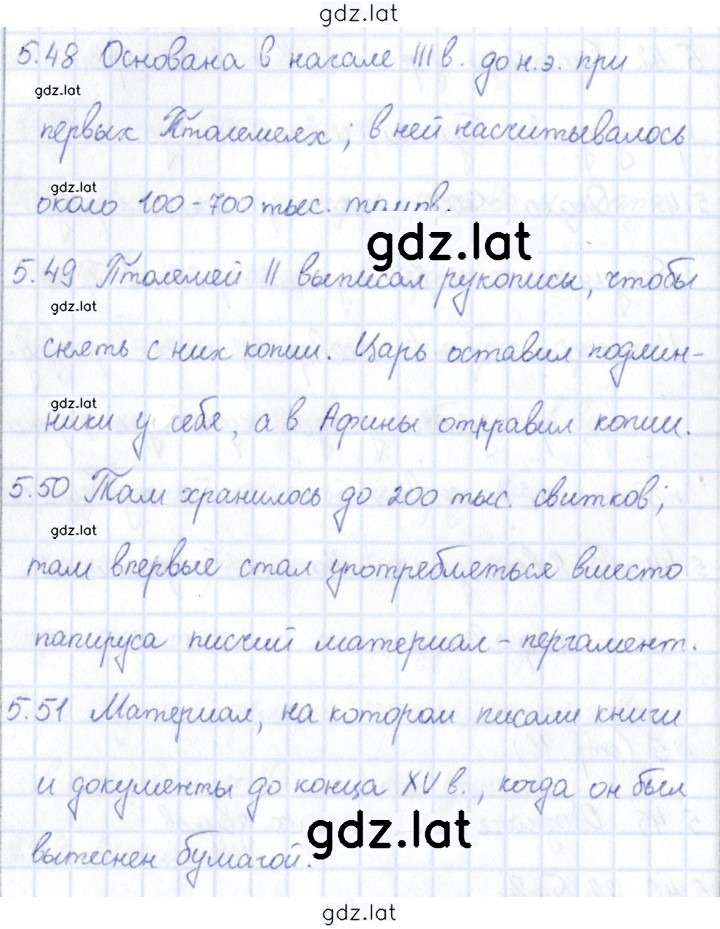 gdz.lat
5.48 Основана в начале III в. до н.э. при
gdz.lat
первых Птолемеях; в ней насчитывалось
gdz.lat
около 100-700 тыс.
gdz.lat
5.49 Птолемей II выписал рукописи, чтобы
gdz.lat
снять с них копии. Царь оставил подлин-
gdz.lat
ники у себя, а в Афины отправил копии.
5.50 Там хранилось до 200 тыс. свитков;
gdz.lat
там впервые стал употребляться вместо
папируса писчий материал - пергамент.
5.51 Материал, на котором писали книги
и документы до конца XV в., когда он был
gdz.lat
вытеснен бумагой.
gdz.lat